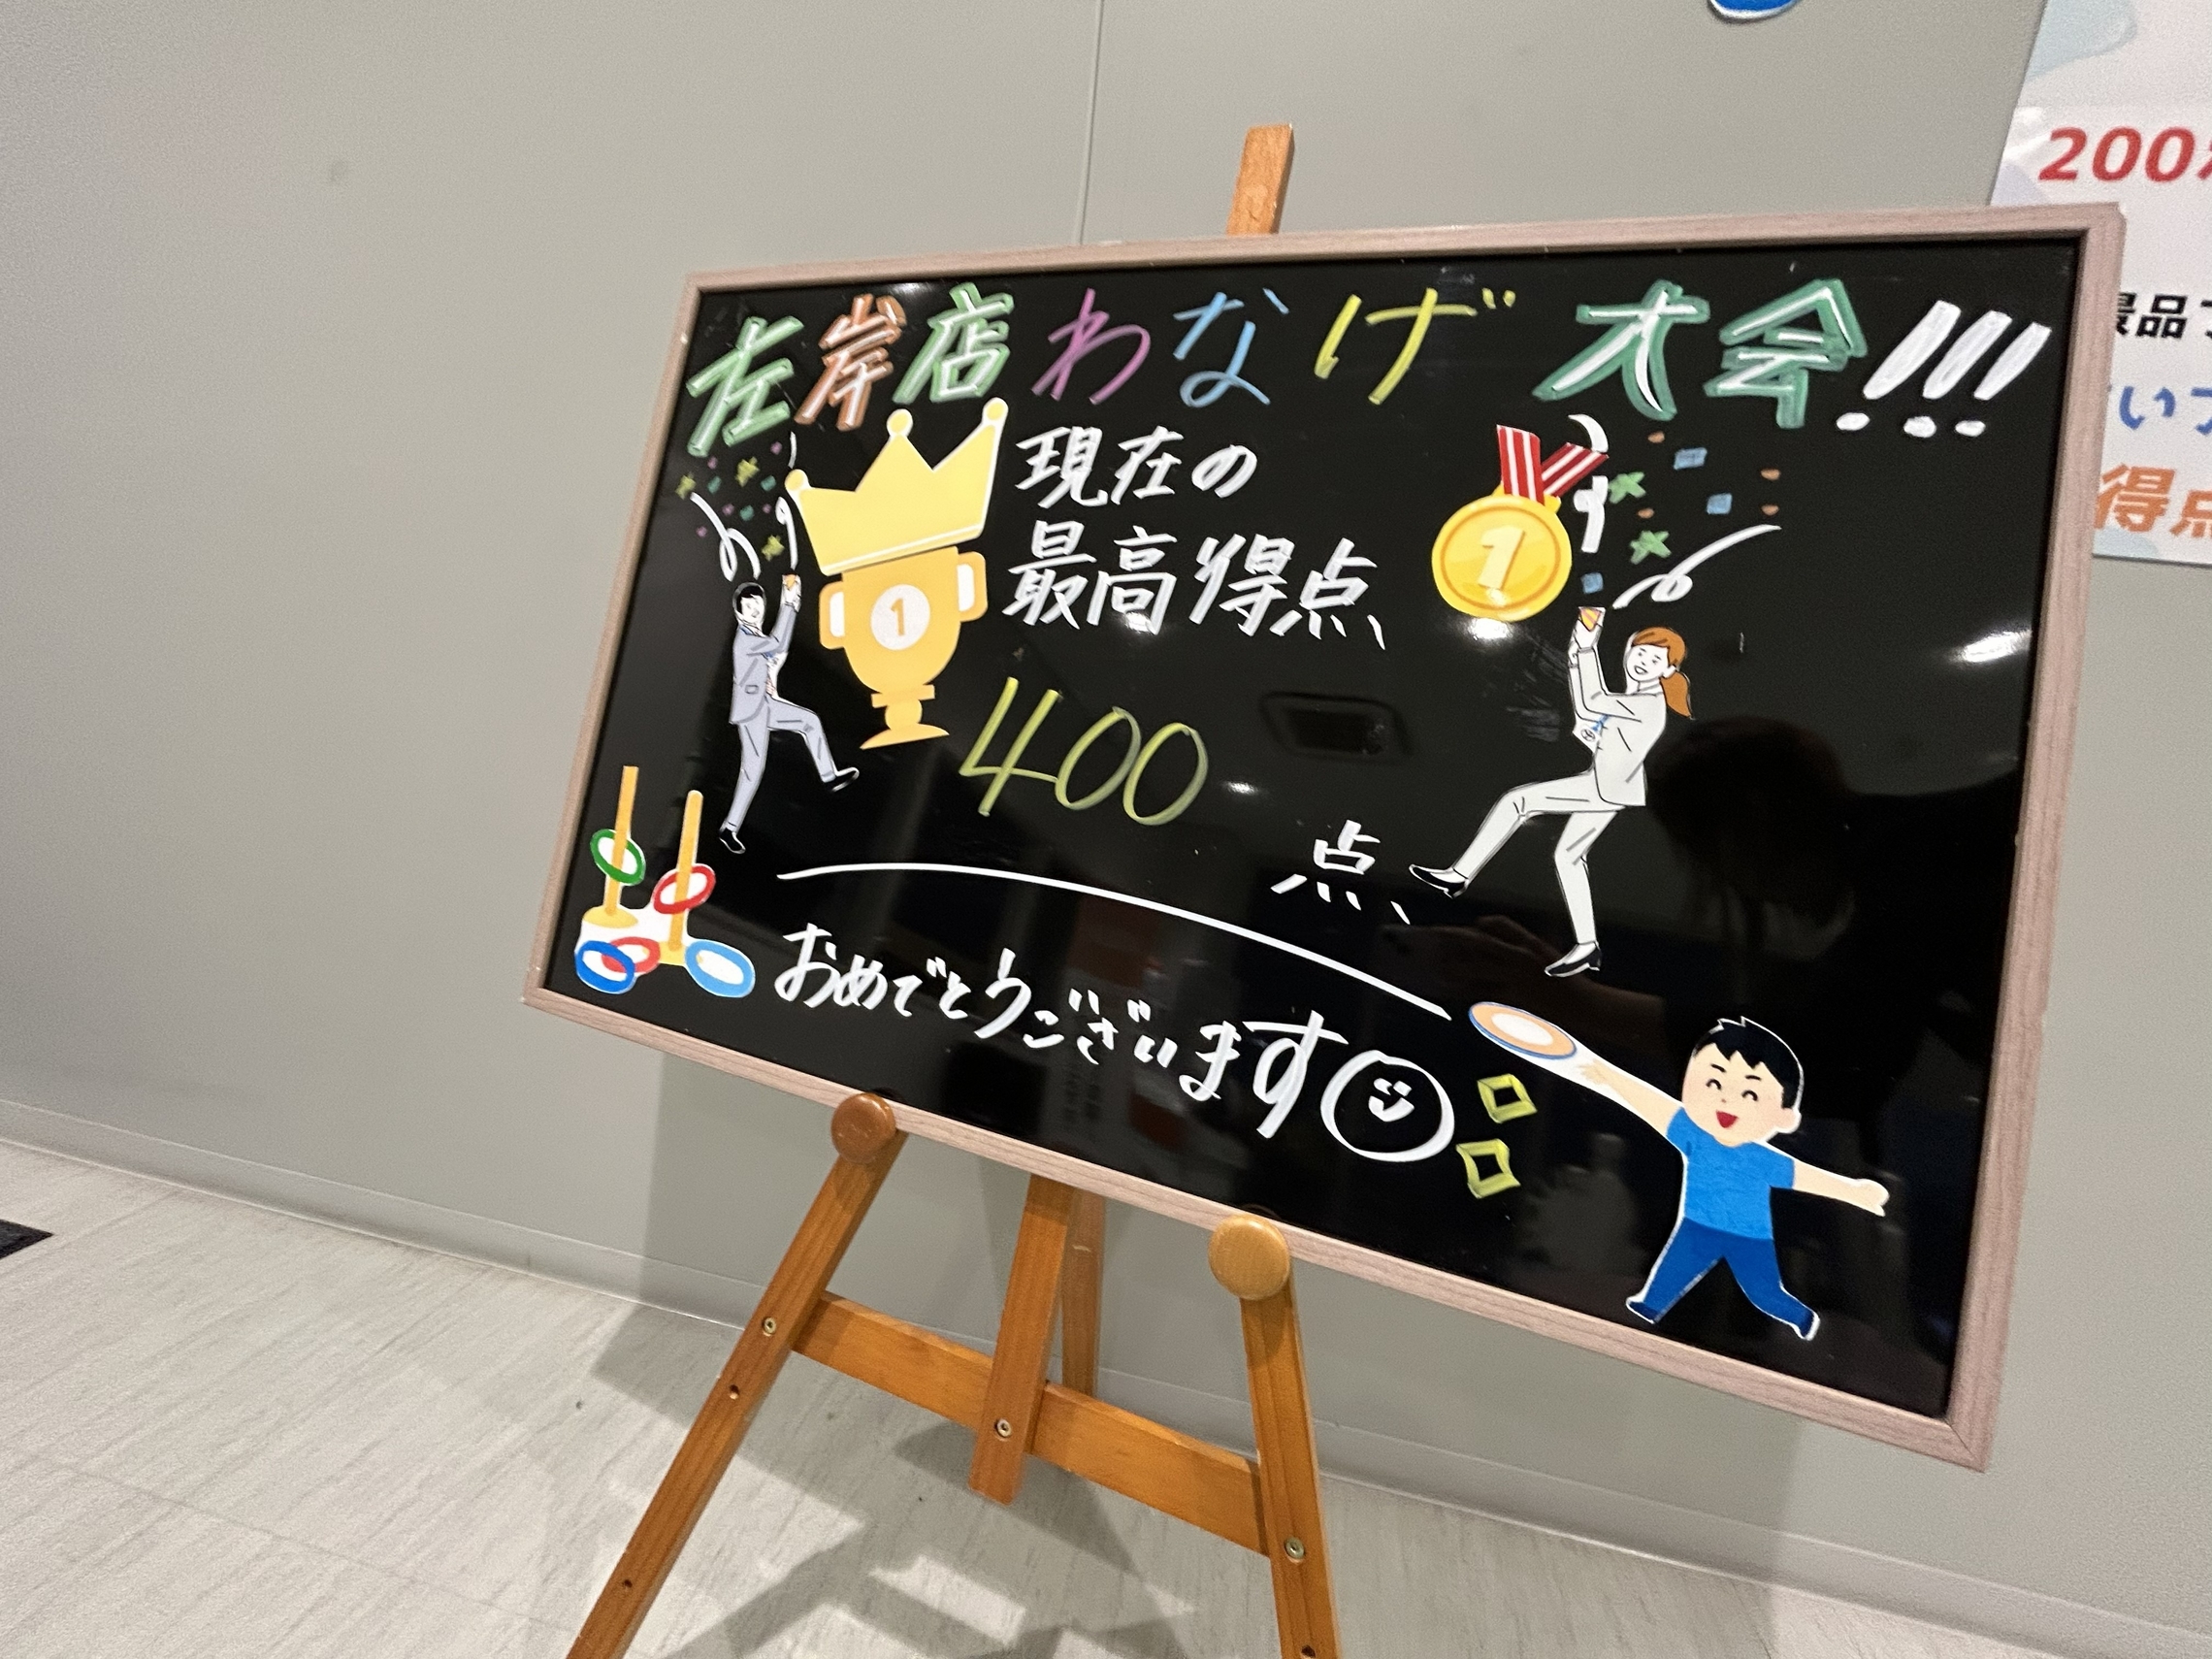 左岸店わなげ大会!!!
現在の
最高得点
1
1
400
点
おめでとうございます
200
品
い
得点